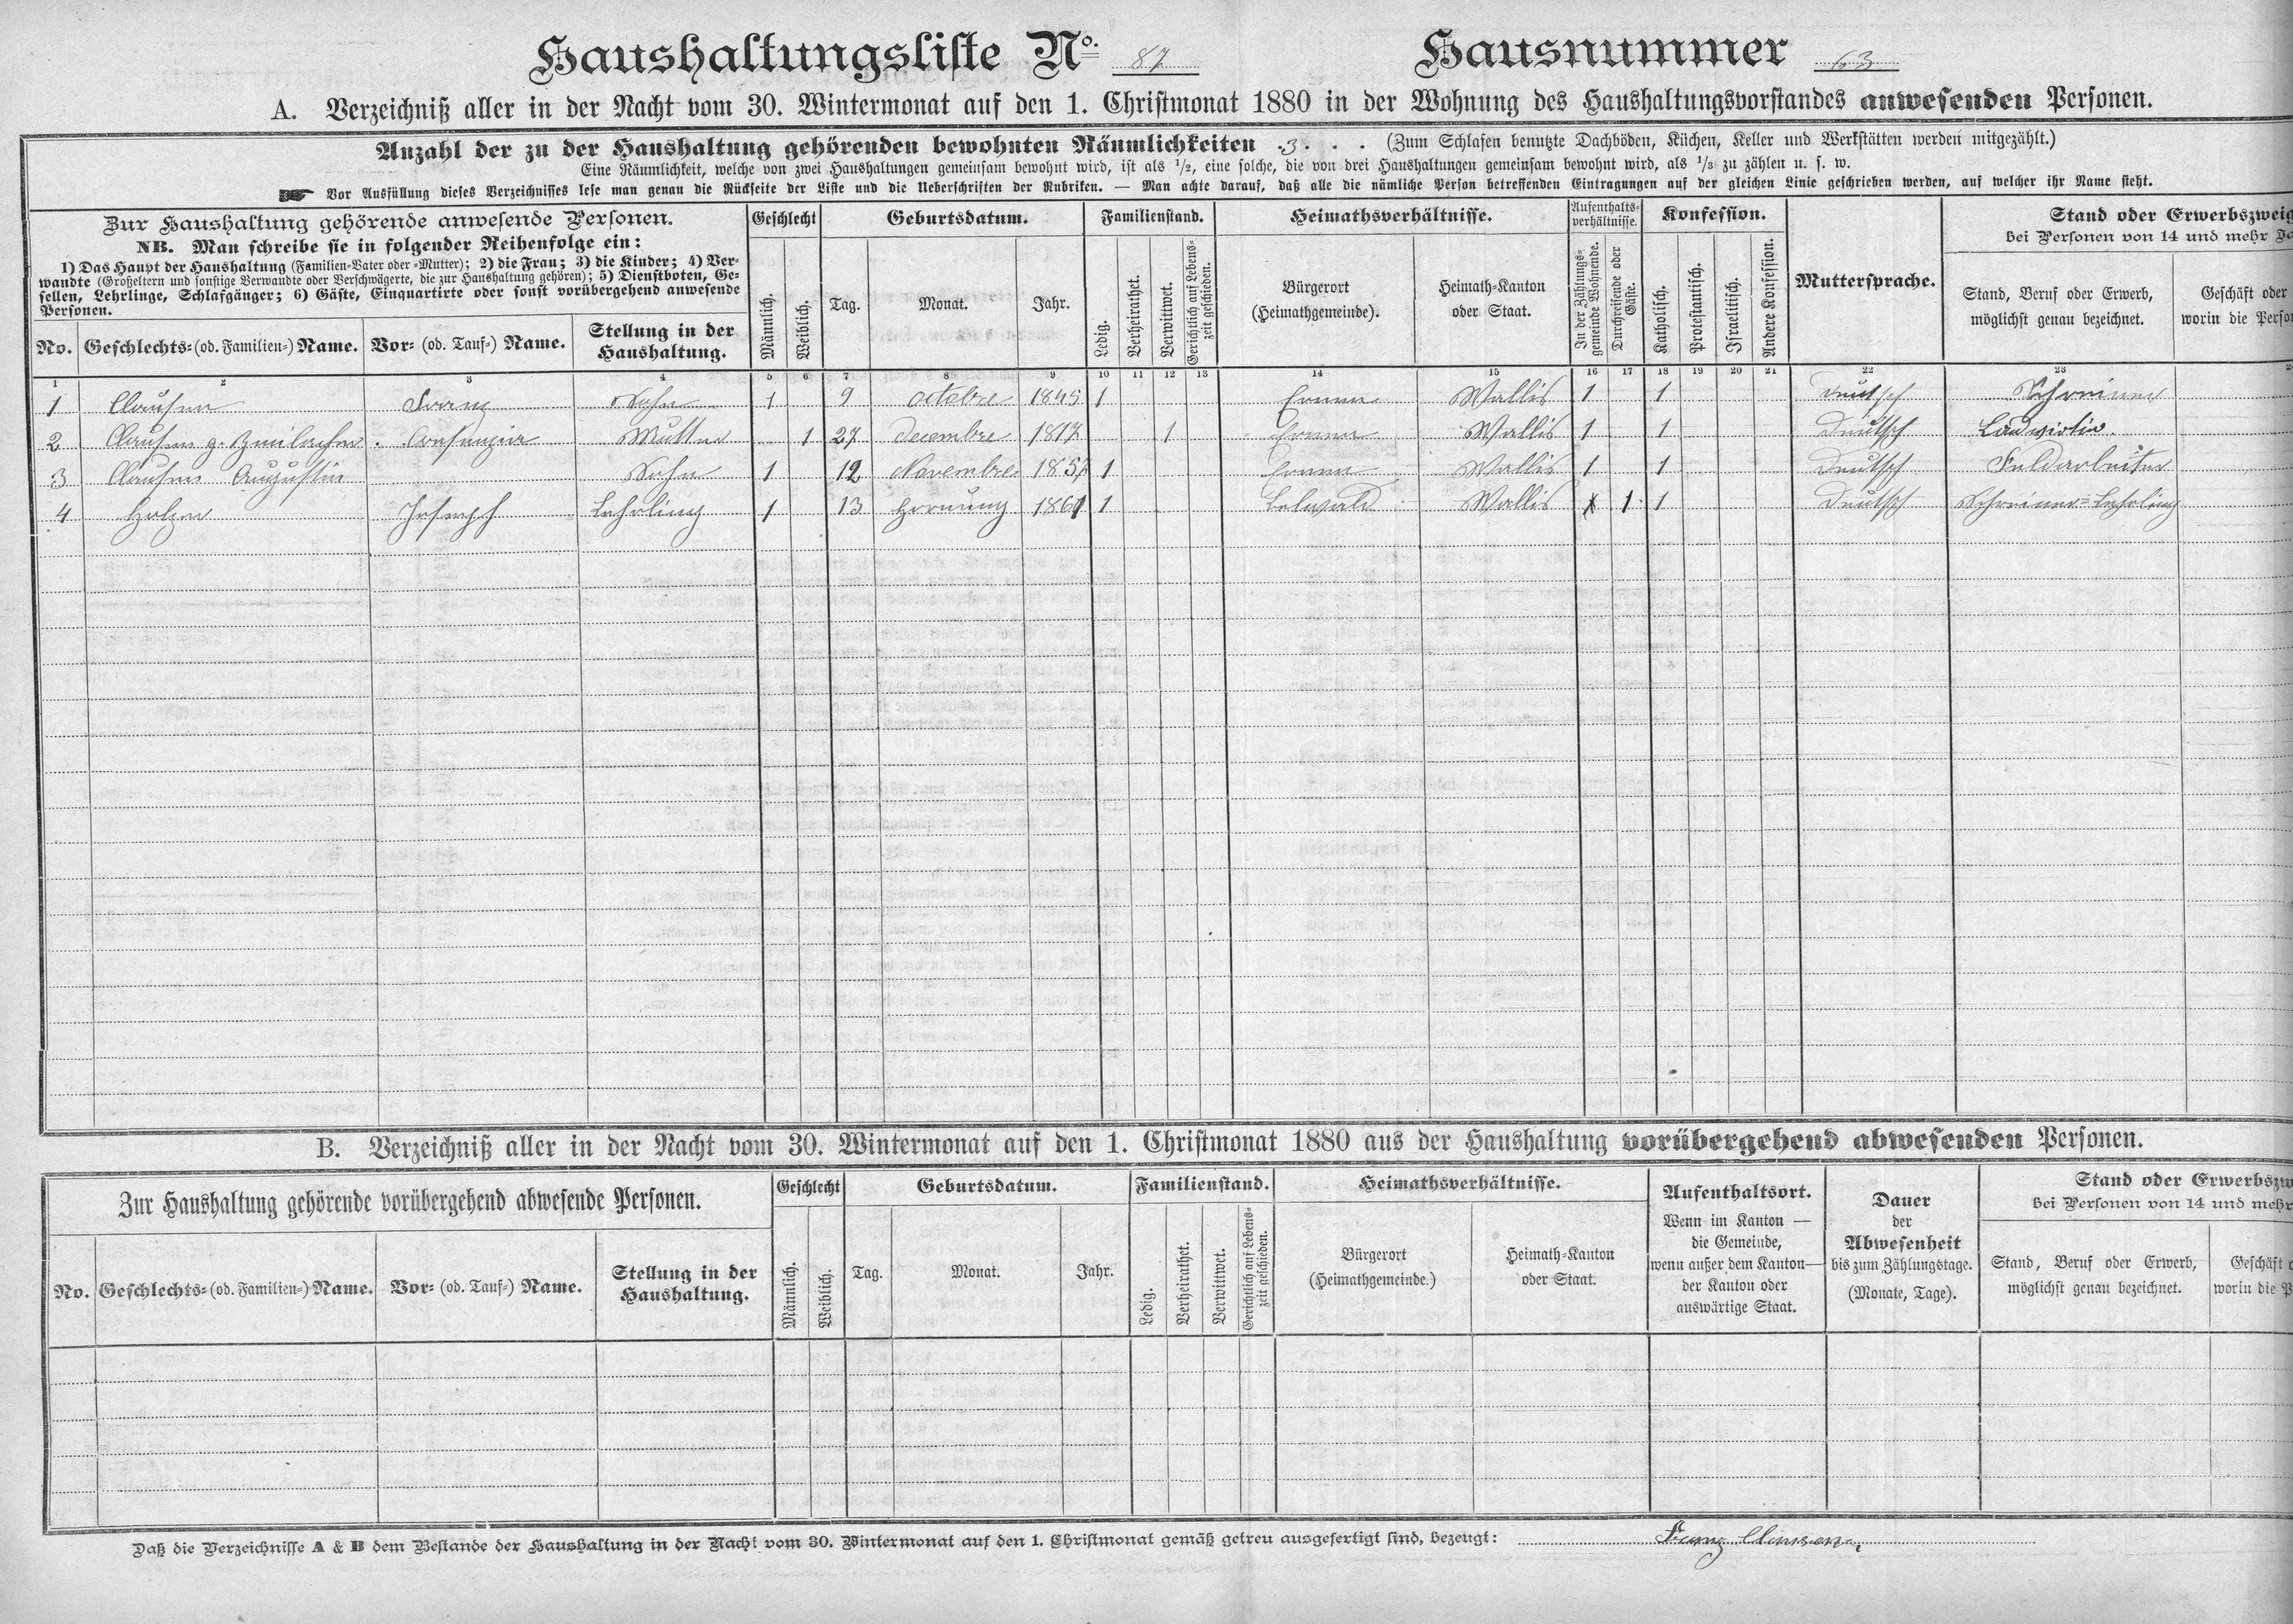 Haushaltungsliste No. 87 Hausnummer 63
A. Verzeichniß aller in der Nacht vom 30. Wintermonat auf den 1. Christmonat 1880 in der Wohnung des Haushaltungsvorstandes anwesenden Personen.
Anzahl der zu der Haushaltung gehörenden bewohnten Räumlichkeiten . 3 . . . (Zum Schlafen benutzte Dachböden, Küchen, Keller und Werkstätten werden mitgezählt.)
Eine Räumlichkeit, welche von zwei Haushaltungen gemeinsam bewohnt wird, ist als 1/2, eine solche, die von drei Haushaltungen gemeinsam bewohnt wird, als 1/3 zu zählen u. s. w.
Vor Ausfüllung dieses Verzeichnisses lese man genau die Rückseite der Liste und die Ueberschriften der Rubriken. — Man achte darauf, daß alle die nämliche Person betreffenden Eintragungen auf der gleichen Linie geschrieben werden, auf welcher ihr Name steht.
Zur Haushaltung gehörende anwesende Personen.
NB. Man schreibe sie in folgender Reihenfolge ein:
1) Das Haupt der Haushaltung (Familien-Vater oder -Mutter); 2) die Frau; 3) die Kinder; 4) Ver-
wandte (Großeltern und sonstige Verwandte oder Verschwägerte, die zur Haushaltung gehören); 5) Dienstboten, Ge-
sellen, Lehrlinge, Schlafgänger; 6) Gäste, Einquartirte oder sonst vorübergehend anwesende
Personen.
No. Geschlechts- (od. Familien-) Name. Vor- (od. Tauf-) Name. Stellung in der
Haushaltung.
Geschlecht
Männlich.
Weiblich.
Geburtsdatum.
Tag. Monat. Jahr.
Familienstand.
Ledig.
Verheirathet.
Verwittwet.
Gerichtlich auf Lebens-
zeit geschieden.
Heimathsverhältnisse.
Bürgerort
(Heimathgemeinde).
Heimath-Kanton
oder Staat.
Aufenthalts-
verhältnisse.
In der Zählungs-
gemeinde Wohnende.
Durchreisende oder
Gäste.
Konfession.
Katholisch.
Protestantisch.
Israelitisch.
Andere Konfession.
Muttersprache.
Stand oder Erwerbszweig
bei Personen von 14 und mehr
Stand, Beruf oder Erwerb,
möglichst genau bezeichnet.
Geschäft oder
worin die
1 2 3 4 5 6 7 8 9 10 11 12 13 14 15 16 17 18 19 20 21 22 23
1 Clausen Franz Sohn 1 9 octobre 1845 1 Ernen Wallis 1 1 Deutsch Schreiner
2 Clausen g. Mutter 1 27 decembre 1817 1 Ernen Wallis 1 1 Deutsch Landwirtin.
3 Clausen Augustin Sohn 1 12 Novembre 1857 1 Ernen Wallis 1 1 Deutsch Feldarbeiter
4 Holzer Joseph Lehrling 1 13 Hornung 1861 1 Belwald Wallis 1 1 Deutsch Schreiner-Lehrling
B. Verzeichniß aller in der Nacht vom 30. Wintermonat auf den 1. Christmonat 1880 aus der Haushaltung vorübergehend abwesenden Personen.
Zur Haushaltung gehörende vorübergehend abwesende Personen.
No. Geschlechts- (od. Familien-) Name. Vor- (od. Tauf-) Name. Stellung in der
Haushaltung.
Geschlecht
Männlich.
Weiblich.
Geburtsdatum.
Tag. Monat. Jahr.
Familienstand.
Ledig.
Verheirathet.
Verwittwet.
Gerichtlich auf Lebens-
zeit geschieden.
Heimathsverhältnisse.
Bürgerort
(Heimathgemeinde.)
Heimath-Kanton
oder Staat.
Aufenthaltsort.
Wenn im Kanton —
die Gemeinde,
wenn außer dem Kanton—
der Kanton oder
auswärtige Staat.
Dauer
der
Abwesenheit
bis zum Zählungstage.
(Monate, Tage).
Stand oder
bei Personen von 14 und mehr
Stand, Beruf oder Erwerb,
möglichst genau bezeichnet.
Geschäft
worin die
Daß die Verzeichnisse A & B dem Bestande der Haushaltung in der Nacht vom 30. Wintermonat auf den 1. Christmonat gemäß getreu ausgefertigt sind, bezeugt: Franz Clausen